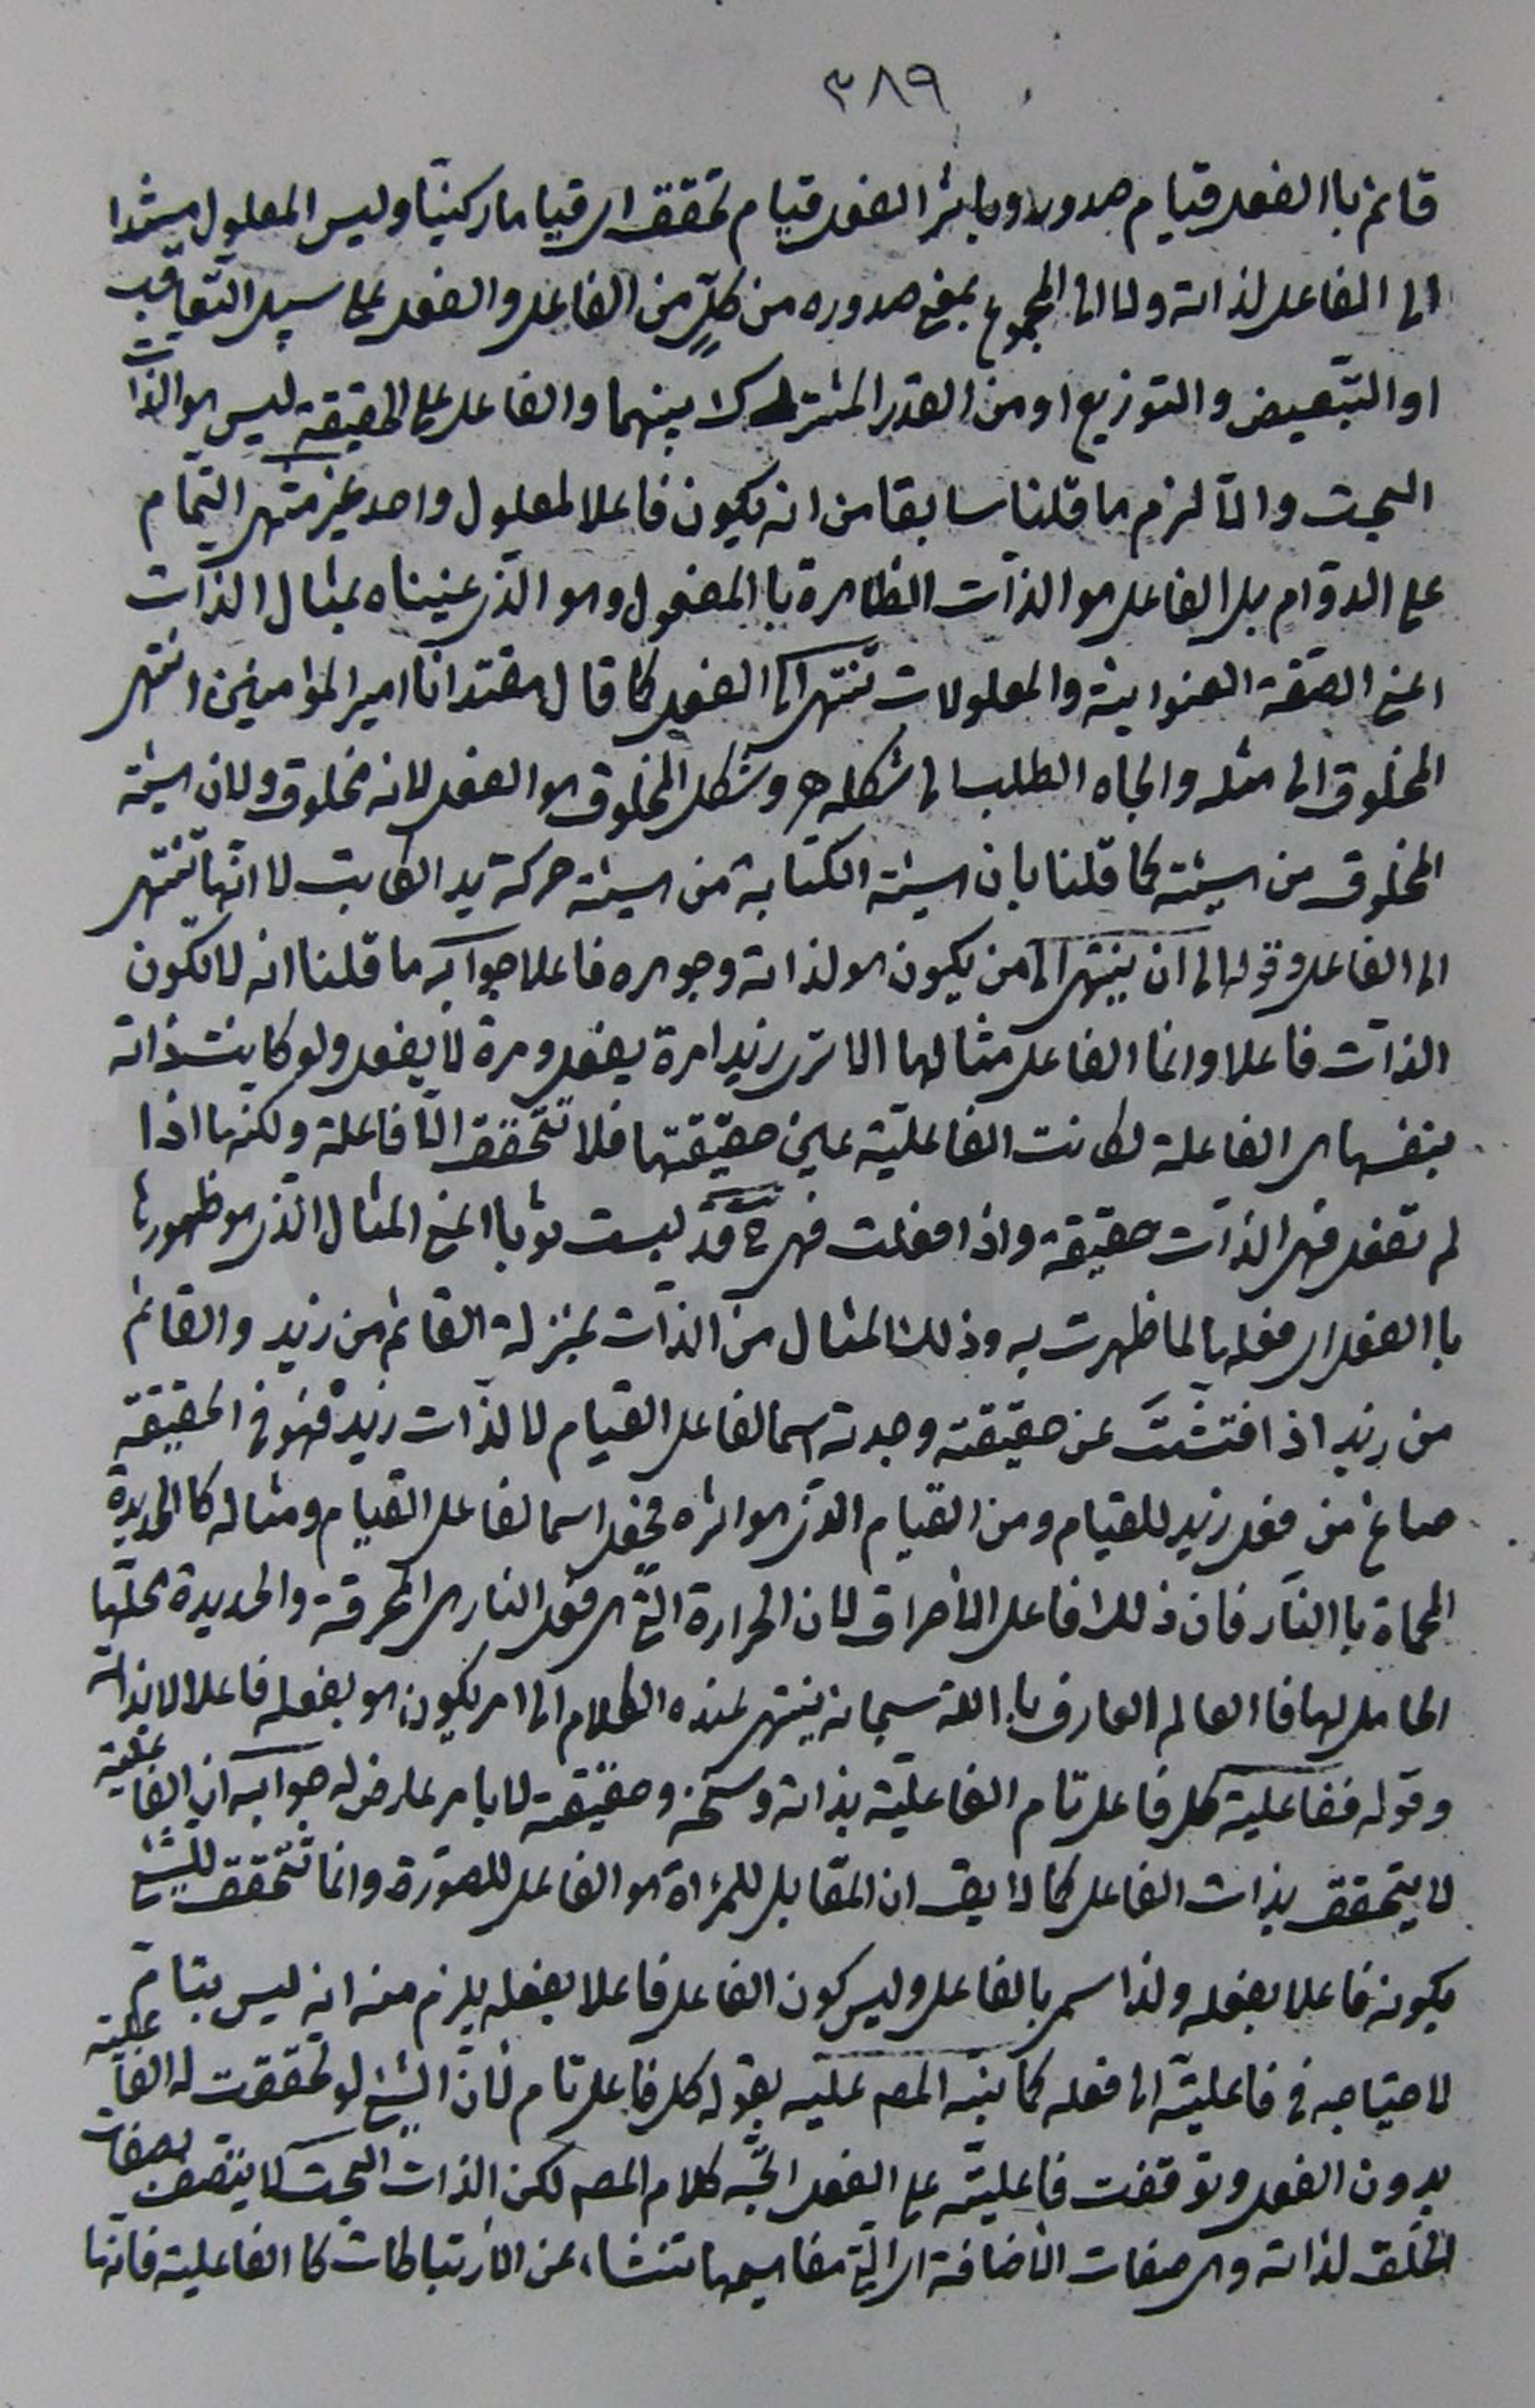 ٣٨٩
قائم باالفعل قيام صدور وباثر الفعل قيام تحقق اى قياما ركنيّا وليس المعلول مستندا
الى الفاعل لذاته ولا الى المجموع بمعنى صدوره من كلّ من الفاعل والفعل على سبيل التّعاقب
او التّبعيض والتوزيع او من القدر المشترك بينهما والفاعل على الحقيقة ليس هو الذات
البحت والّا لزم ما قلنا سابقا من انه يكون فاعلا لمعلول واحد غير متهى التّمام
على الدوّام بل الفاعل هو الذّات الظاهرة باالمفعول وهو الذّى عنيناه بمثال الذّات
اعنى الصّفة العنوانيّة والمعلولات تنتهى الى الفعل كما قال مقتدانا امير المؤامنين انتهى
المخلوق الى مثله والجاه الطلب الى شكله وشكل المخلوق هو الفعل لانه مخلوق ولان هيئة
المخلوق من هيئته كما قلنا بان هيئة الكتابة من هيئة حركة يد الكاتب لا انّها تنتهى
الى الفاعل وقوله الى ان ينتهى الى من يكون هو لذاته وجوهره فاعلا جوابه ما قلنا انه لا تكون
الذّات فاعلا وانما الفاعل مثالها الا ترى زيدا مرة يفعل ومرة لا يفعل ولو كانت ذاته
بنفسها هى الفاعلة لكانت الفاعليّة عين حقيقتها فلا تتحقق الّا فاعلة ولكنها اذا
لم تفعل فهى الذّات حقيقة واذا فعلت فهى ح قد لبست ثوبا اعنى المثال الذّى هو ظهورها
باالفعل اى فعلها لما ظهرت به وذلك المثال من الذّات بمنزلة القائم من زيد والقائم
من زيد اذا فتّشتَ عن حقيقته وجدته اسما لفاعل القيام لا لذات زيد فهو فى الحقيقة
صاغ من فعل زيد للقيام ومن القيام الذّى هو اثره فجعل اسما لفاعل القيام ومثاله كاالحديدة
المحماة باالنّار فان ذلك فاعل الأحراق لان الحرارة الّتى هى فعل النار هى المحرقة والحديدة محلّها
الحامل لها فاالعالم العارف باالله سبحانه ينتهى عنده الكلام الى امر يكون هو بفعله فاعلا لا بذاته
وقوله ففاعلية كل فاعل تام الفاعليّة بذاته وسنخه وحقيقته لا بامر عارض له جوابه ان الفاعلية
لا يتحقق بذات الفاعل كما لا يق ان المقابل للمراة هو الفاعل للصّورة وانما تتحقق للشئ
بكونه فاعلا بفعله ولذا سمى بالفاعل وليس كون الفاعل فاعلا بفعله يلزم منه انه ليس بتامّ
لاحتياجه فى فاعليته الى فعله كما نبّه المصـ عليه بقوله كل فاعل تام لأنّ الشئ لو تحققت له الفاعلية
بدون الفعل وتوقفت فاعليته على الفعل اتّجه كلام المصـ لكن الذات البحت لا يتّصف بصفات
الخلق لذاته وهى صفات الأضافة اى الّتى مفاهيمها تنشاء عن الأرتباطات كا الفاعلية فانها